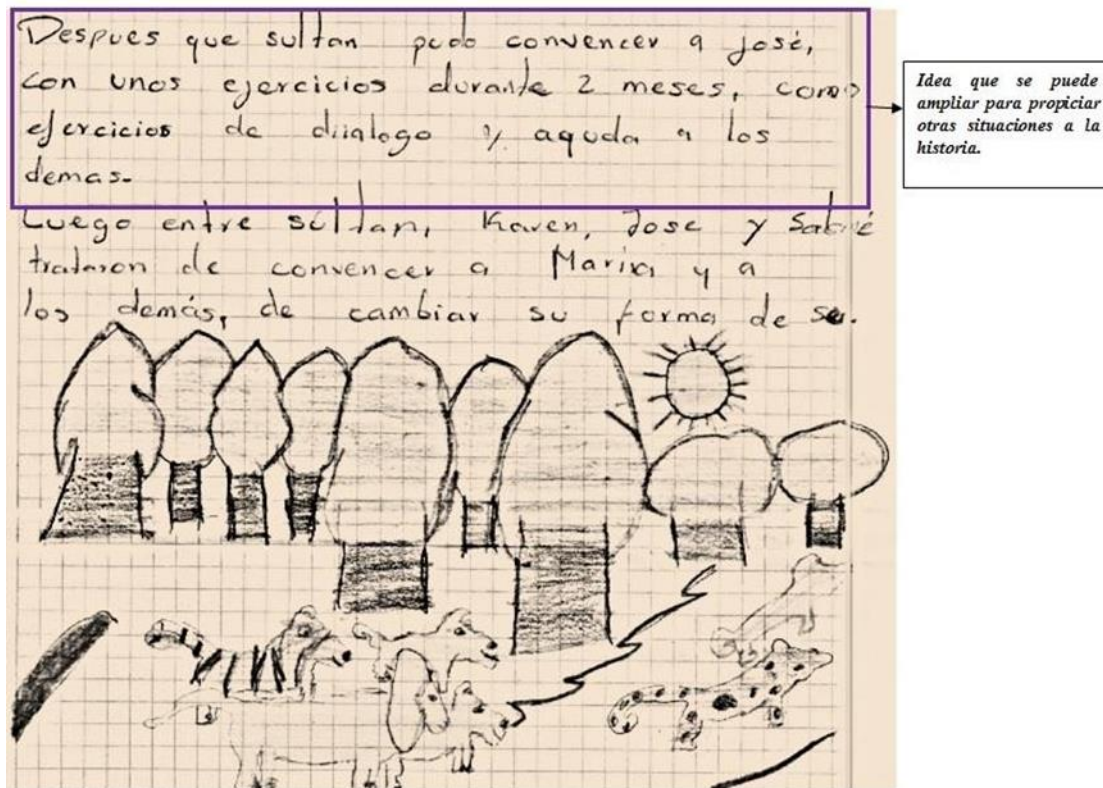 Despues que sultan pudo convencer a josé,
con unos ejercicios durante 2 meses, como
ejercicios de diialogo y ayuda a los
demas.
Luego entre sultan, Karen, Jose y Salomé
trataron de convencer a Maria y a
los demás, de cambiar su forma de ser.
Idea que se puede
ampliar para propiciar
otras situaciones a la
historia.